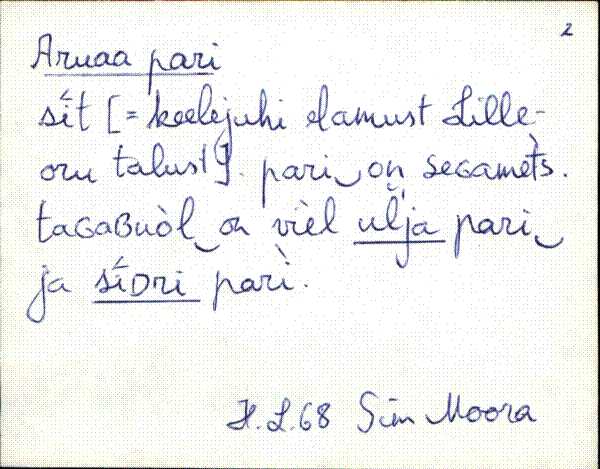 2
Aruaa pari
sít [= keelejuhi elamust Lille-
oru talust]. pari‿on seGamèts.
taGaBuòl‿on vièl ulja pari‿
ja síDri parì.
H. L. 68 Sim Moora